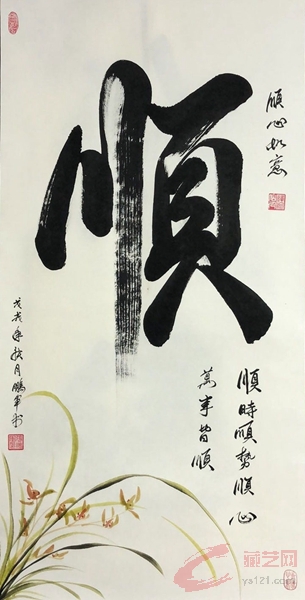 順心如意
順
順時順勢順心
萬事皆順
戊戌年秋月鵬軍书
藏艺网